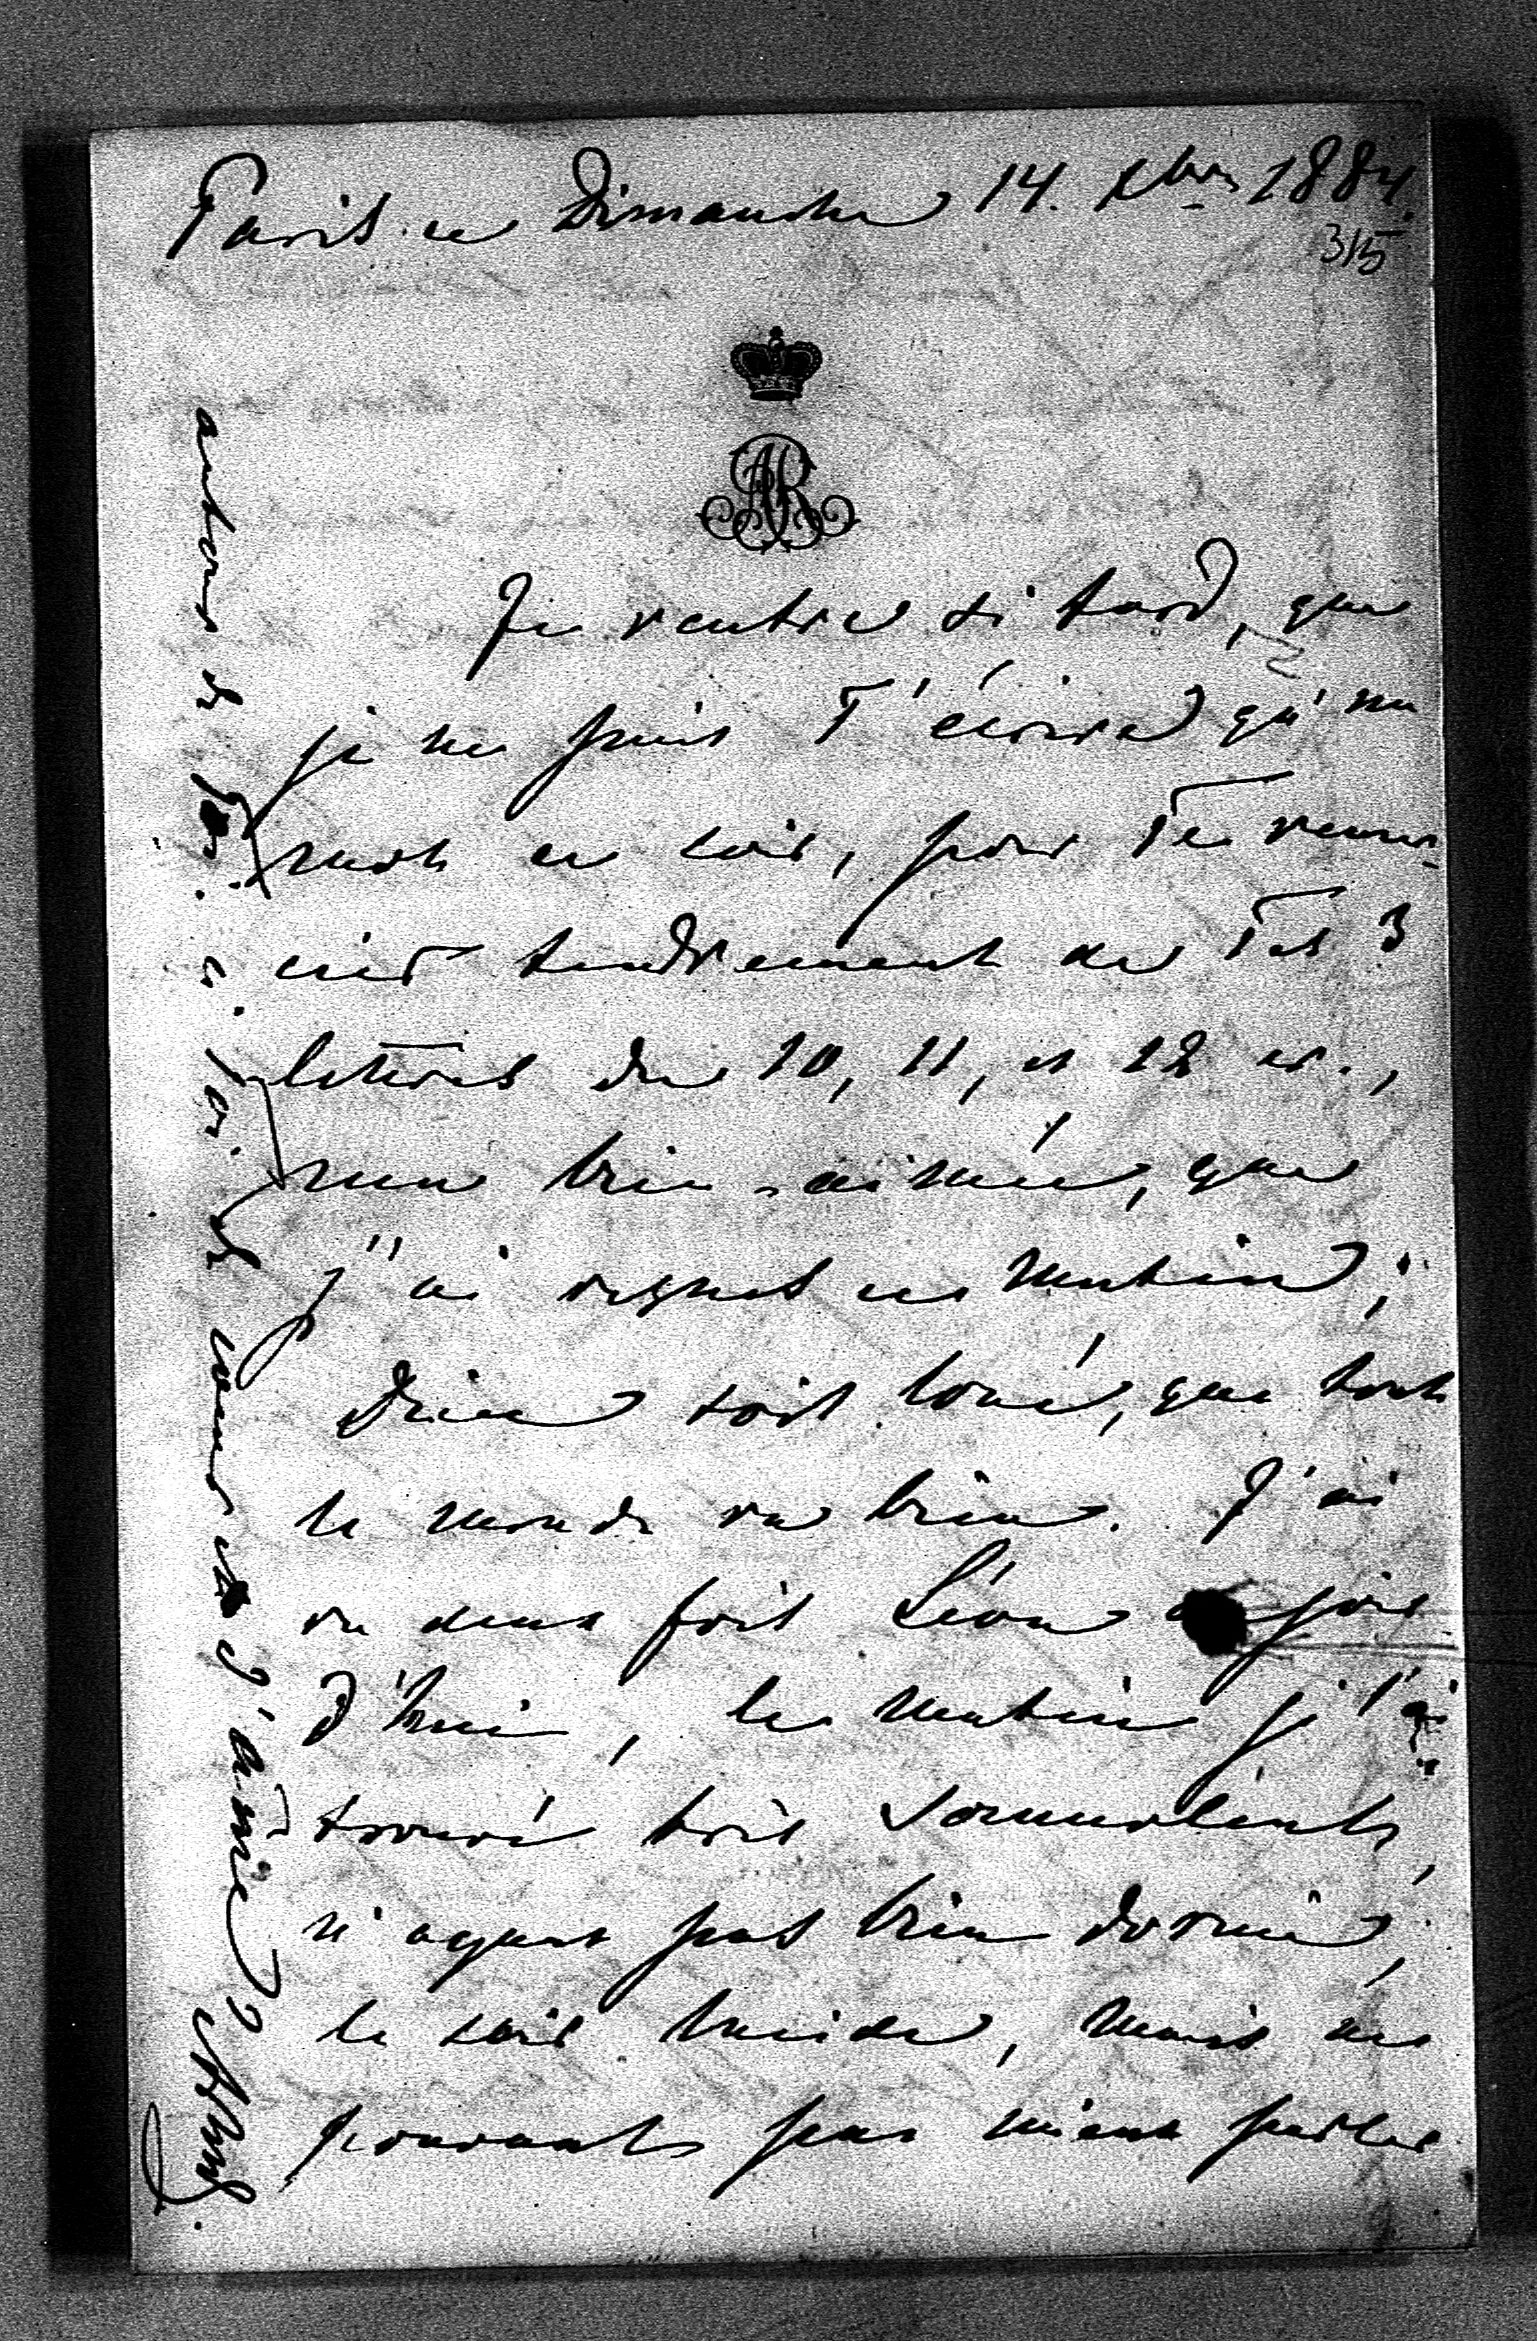 Paris ce Dimanche 14. Xbre 1884.
315
AR
Je rentre si tard, que
je ne puis T'écrire qu'un
mot ce soir, pour Te remer-
cier tendrement de Tes 3
lettres du 10, 11, et 12 cr.,
mon bien-aimé, que
j'ai reçues ce matin;
Dieu soit loué, que tout
le monde va bien. J'ai
vu deux fois Léon aujour
d'hui, le matin je l'ai
trouvé très somnolent,
n'ayant pas bien dormi,
le soir lucide, mais ne
pouvant pas mieux parler
autour de Toi. à Toi de cœur et d'âme